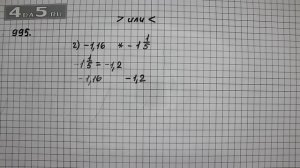 4 на 5.ru
> или <
995.
2) -1,16 * -1 1/5
-1 1/5 = -1,2
-1,16 -1,2